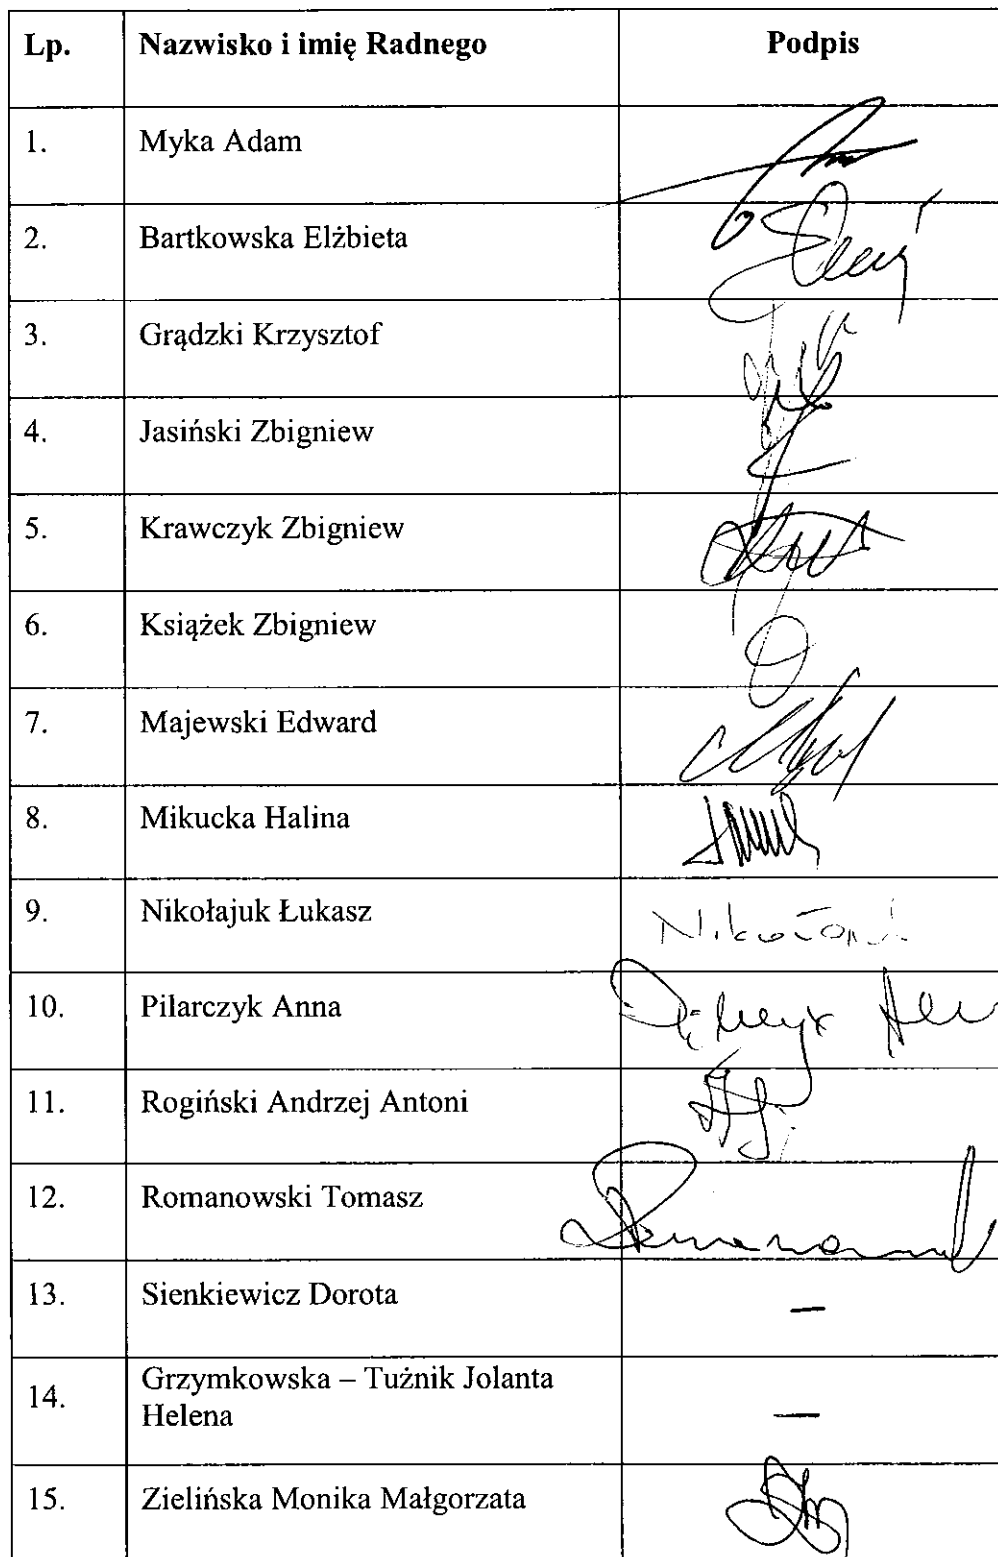 Lp. Nazwisko i imię Radnego Podpis
1. Myka Adam
2. Bartkowska Elżbieta
3. Grądzki Krzysztof
4. Jasiński Zbigniew
5. Krawczyk Zbigniew
6. Książek Zbigniew
7. Majewski Edward
8. Mikucka Halina
9. Nikołajuk Łukasz
10. Pilarczyk Anna
11. Rogiński Andrzej Antoni
12. Romanowski Tomasz
13. Sienkiewicz Dorota —
14. Grzymkowska – Tużnik Jolanta
Helena —
15. Zielińska Monika Małgorzata